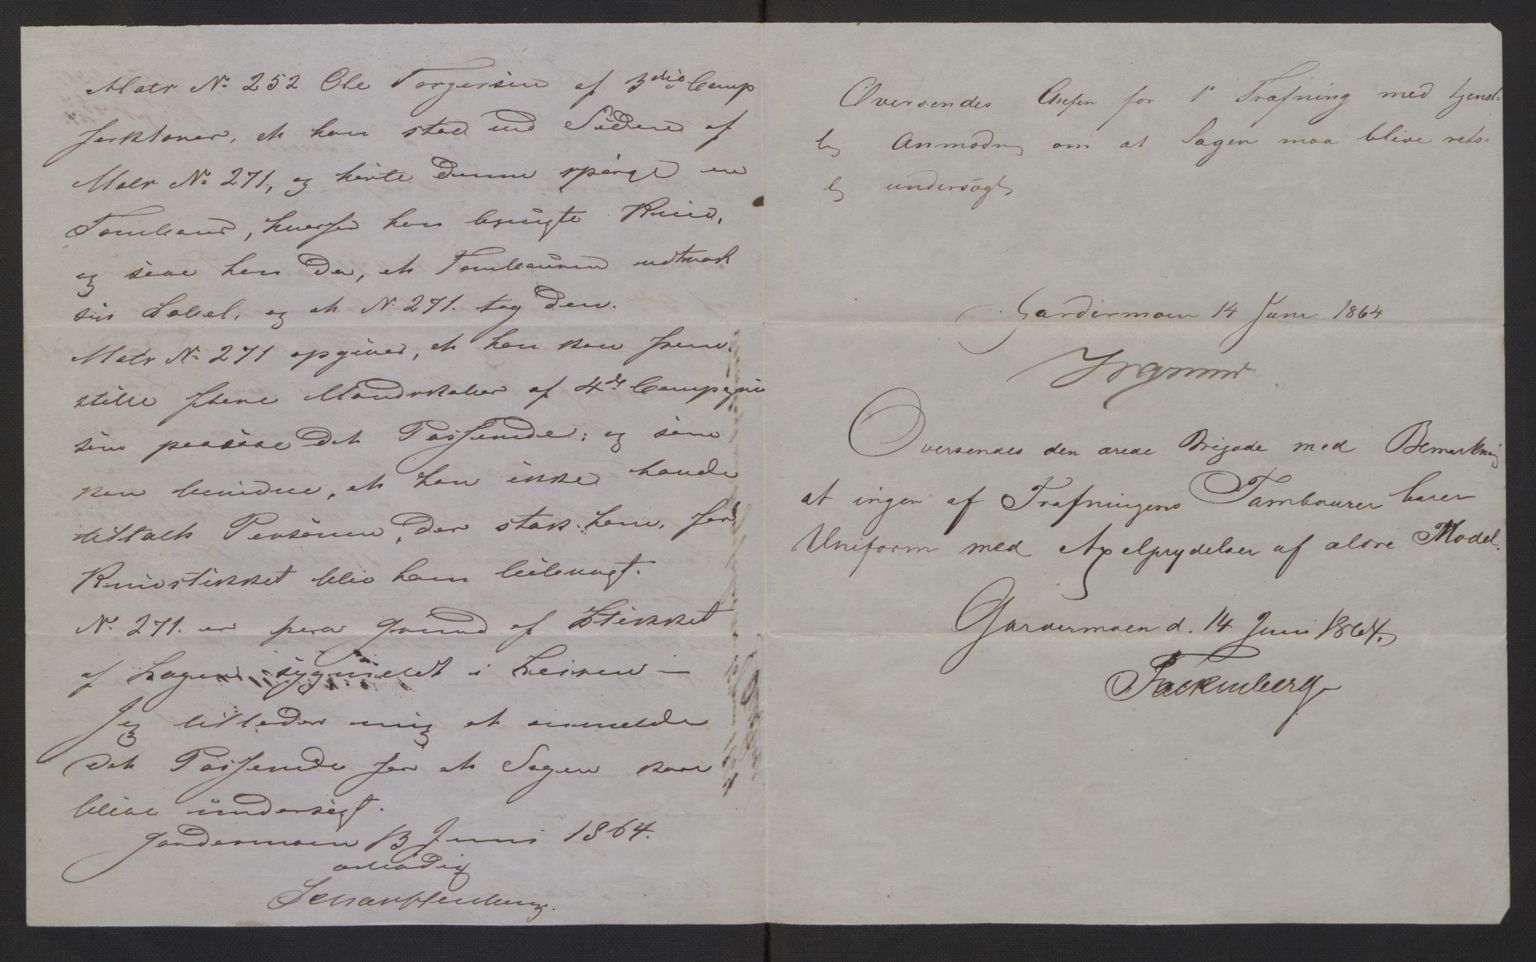 Matr № 252 Ole Torgersen af 3die Comp
forklarer, at han stod ved Siden af
Matr № 271, og hørte denne spørge en
Tambour, hvorfor han brugte Kniv,
og saae han da, at Tambouren udtrak
sin Sabel, og at № 271. tog den.
Matr № 271 opgiver, at han kan frem-
stille flere Mandskaber af 4de Compagnie
som paasaae det Passerede; og som
kan bevidne, at han ikke havde
tiltalt Personen, der stak ham, før
Knivstikket blev ham bibragt.
№ 271. er paa Grund af Stikket
af Lægen sygmeldt i Leiren —
Jeg tillader mig at anmelde
det Passerede for at Sagen kan
blive undersøgt.
Gardermoen 13 Juni 1864.
ærbødig
Scharffenberg.
Oversendes Chefen for 1e Træfning med tjenst-
lig Anmodng om at Sagen maa blive rets-
lig undersøgt,
Gardermoen 14 Juni 1864
Oversendes den ærede Brigade med Bemærkning
at ingen af Træfningens Tambourer bærer
Uniform med Axelprydelser af ældre Model.
Gardermoen d. 14 Juni 1864,
Fackenberg